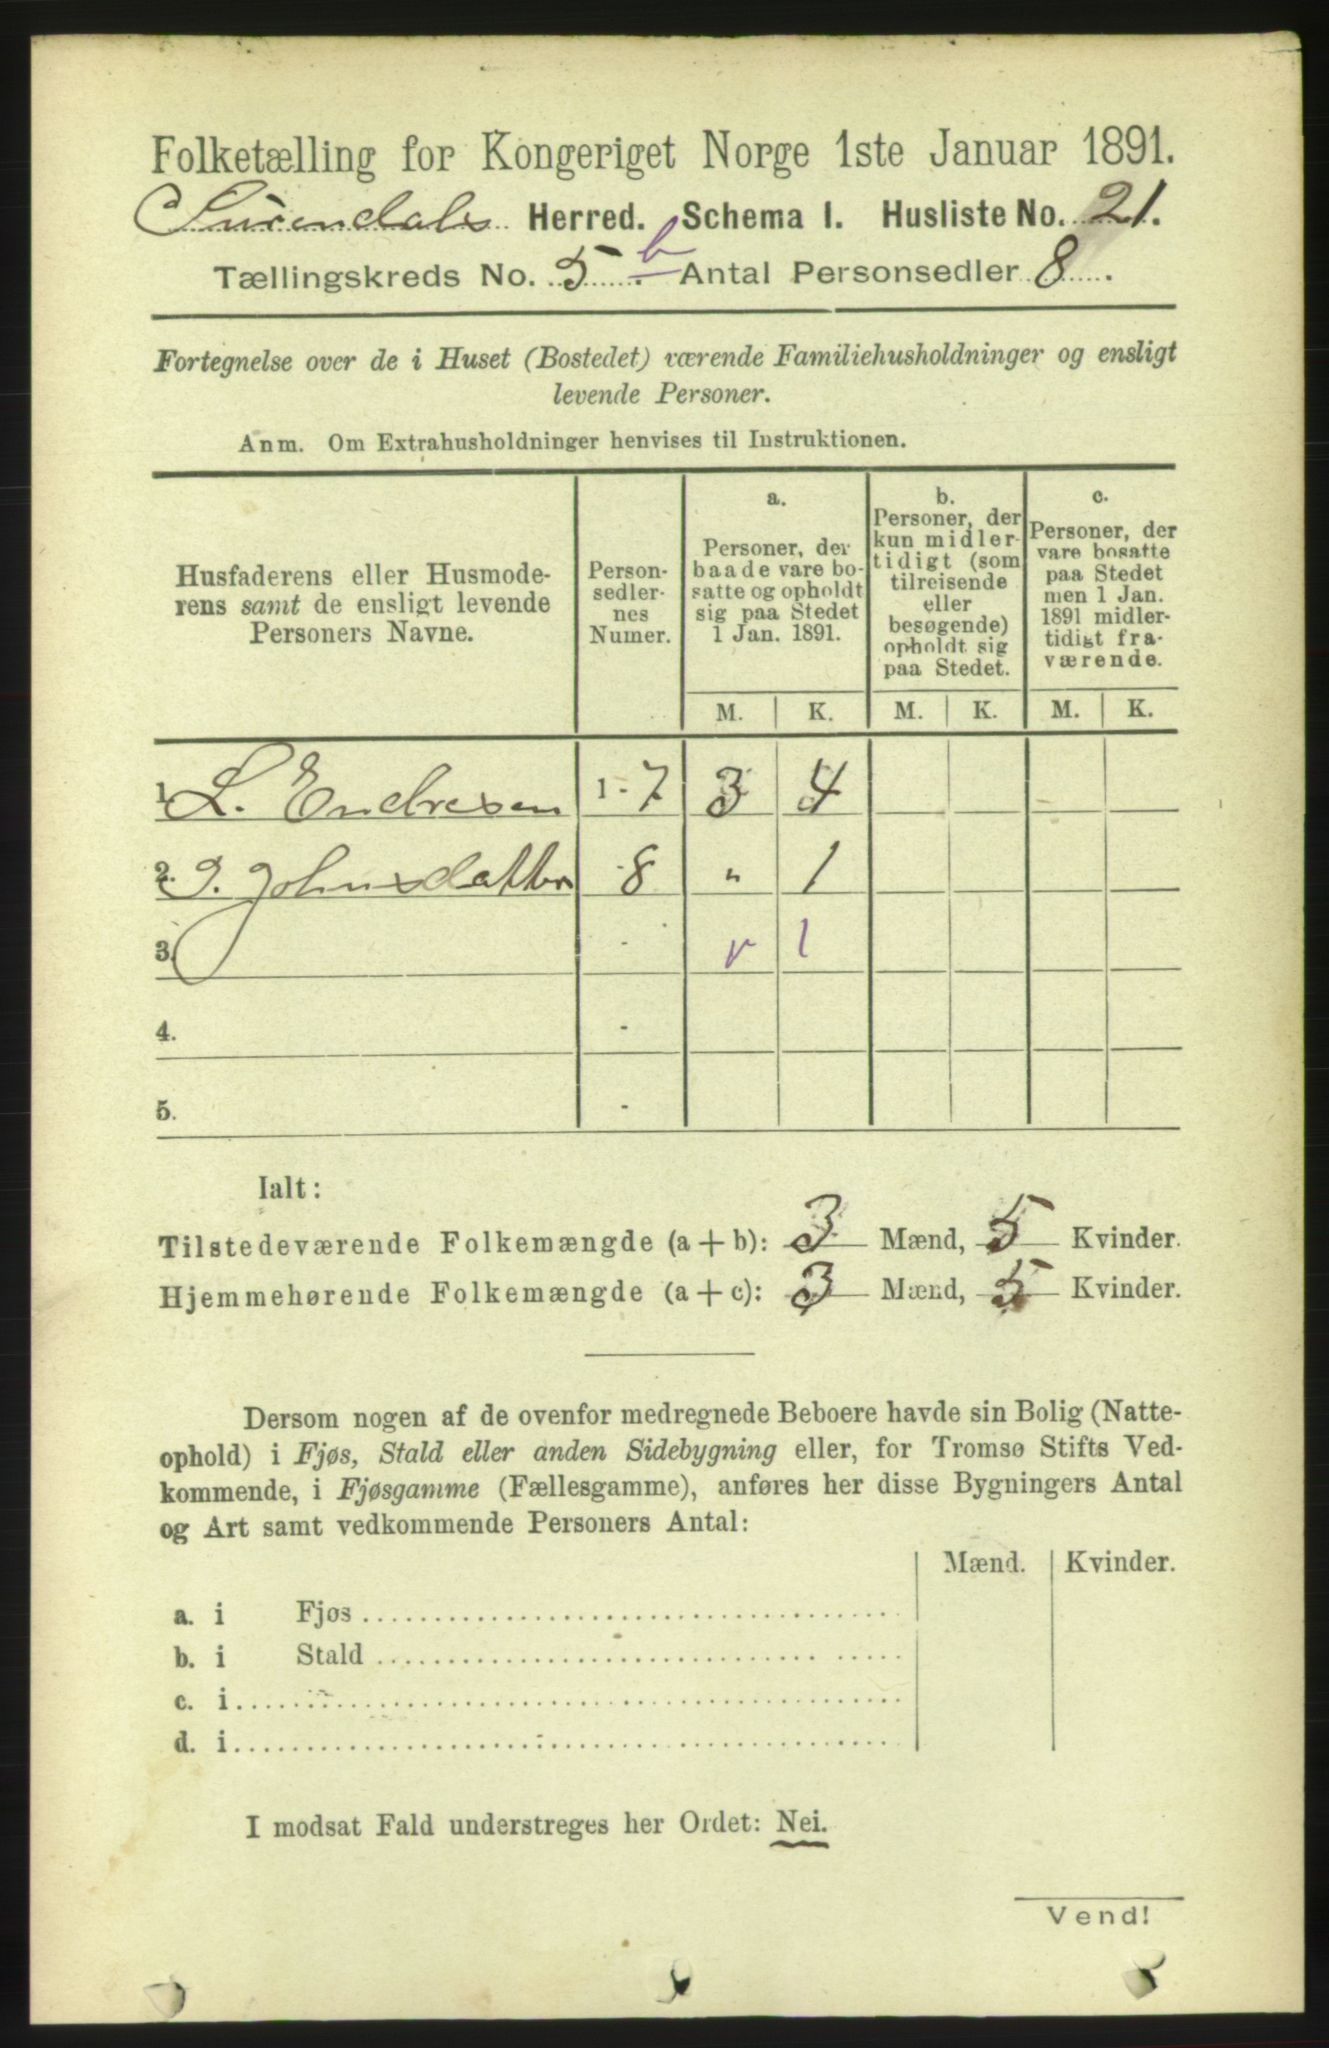 Folketælling for Kongeriget Norge 1ste Januar 1891.
Surendals Herred. Schema I. Husliste No. 21.
Tællingskreds No. 5 b. Antal Personsedler 8.
Fortegnelse over de i Huset (Bostedet) værende Familiehusholdninger og ensligt
levende Personer.
Anm. Om Extrahusholdninger henvises til Instruktionen.
Husfaderens eller Husmode-
rens samt de ensligt levende
Personers Navne.
Person-
sedler-
nes
Numer.
a.
Personer, der
baade vare bo-
satte og opholdt
sig paa Stedet
1 Jan. 1891.
b.
Personer, der
kun midler-
tidigt (som
tilreisende
eller
besøgende)
opholdt sig
paa Stedet.
c.
Personer, der
vare bosatte
paa Stedet
men 1 Jan.
1891 midler-
tidigt fra-
værende.
M. K. M. K. M. K.
1. L. Endresen 1-7 3 4
2. J. Johnsdatter -8 " 1
3. - v 1
4. -
5. -
Ialt:
Tilstedeværende Folkemængde (a+b): 3 Mænd, 5 Kvinder.
Hjemmehørende Folkemængde (a+c): 3 Mænd, 5 Kvinder.
Dersom nogen af de ovenfor medregnede Beboere havde sin Bolig (Natte-
ophold) i Fjøs, Stald eller anden Sidebygning eller, for Tromsø Stifts Ved-
kommende, i Fjøsgamme (Fællesgamme), anføres her disse Bygningers Antal
og Art samt vedkommende Personers Antal:
Mænd. Kvinder.
a. i Fjøs
b. i Stald
c. i
d. i
I modsat Fald understreges her Ordet: Nei.
Vend!